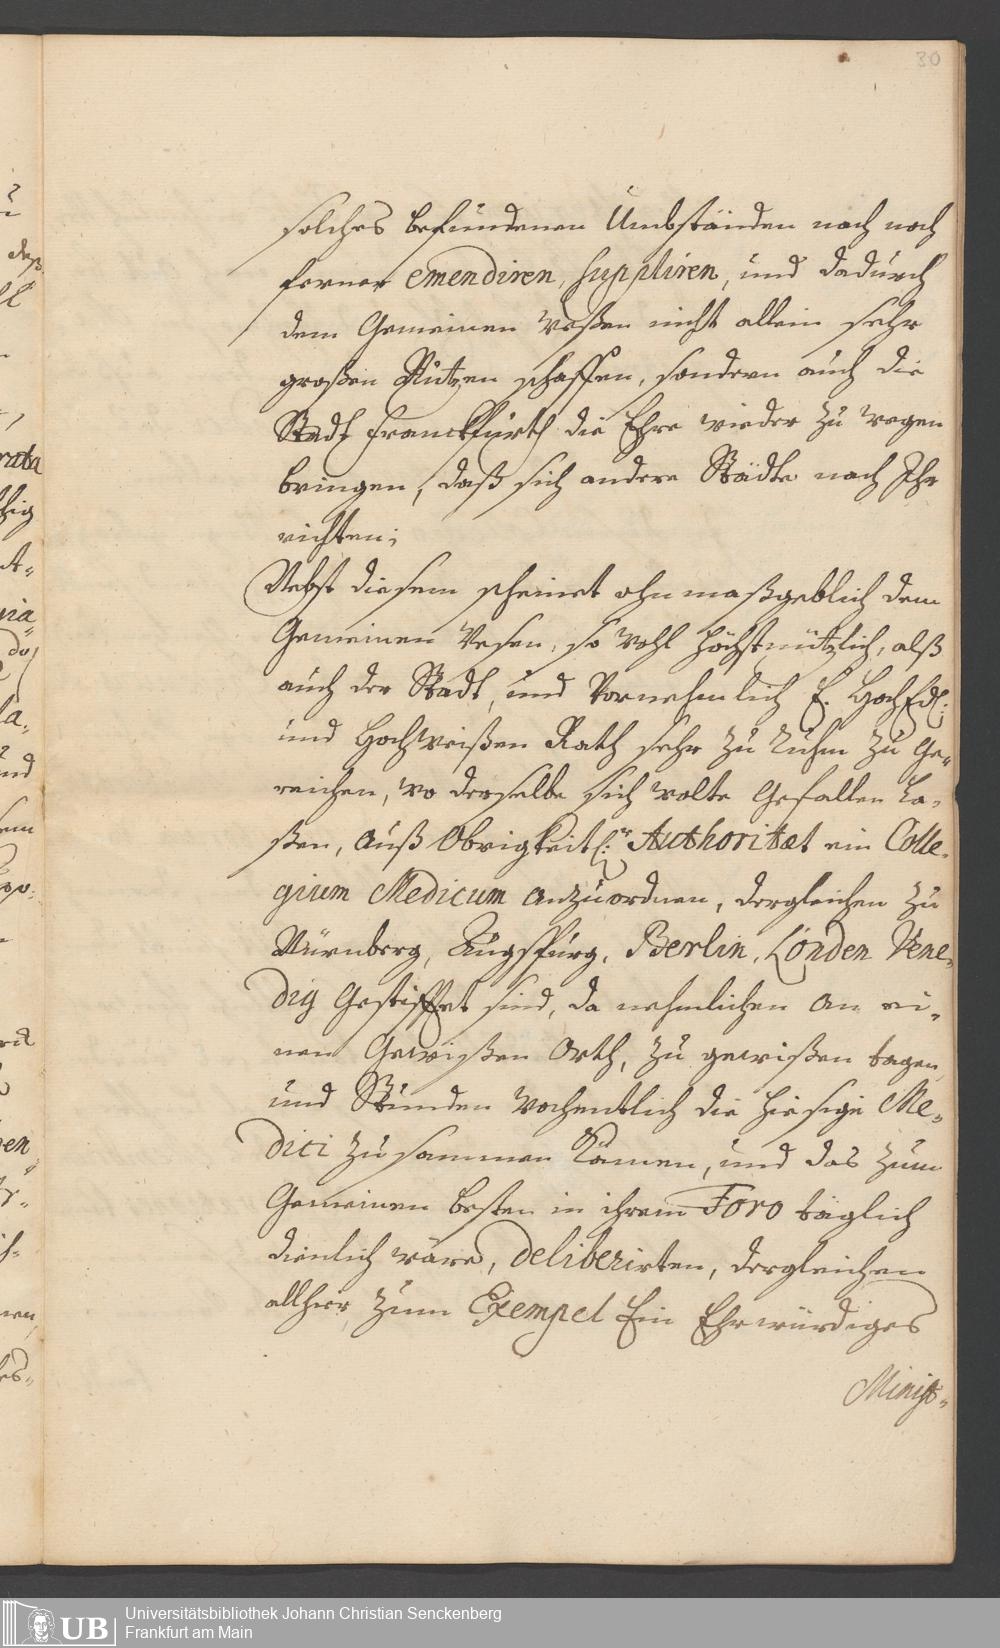 30
solches befundenen Umbständen nach noch
ferner emendiren, suppliren, und dadurch
dem Gemeinen Weßen nicht allein sehr
großen Nutzen schaffen, sondern auch die
Stadt Franckfurth die Ehre wieder zu wegen
bringen, daß sich andere Städte nach Ihr
richten;
Nebst diesem scheinet ohnmaßgeblich dem
Gemeinen Wesen, so wohl höchstnützlich, alß
auch der Stadt, und Vornehmlich E. HochEdl:
und Hochweißen Rath sehr zu Ruhm zu Ge-
reichen, wo derselbe sich wolte Gefallen La-
ßen, auß Obrigkeitl:r Authoritæt ein Colle-
gium Medicum anzuordnen, dergleichen zu
Nürnberg, Augspurg, Berlin, Londen Vene-
dig Gestifftet sind, da nehmlichen an ei-
nen Gewißen Orth, zu gewißen tagen
und Stunden Wochentlich die hiesige Me-
dici zusammen Kämen, und das zum
Gemeinen besten in ihrem Foro täglich
dienlich wäre, deliberirten, dergleichen
allhier zum Exempel Ein Ehrwürdiges
Minist-
UB
Universitätsbibliothek Johann Christian Senckenberg
Frankfurt am Main